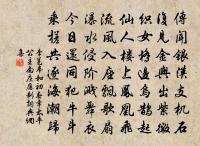 傳聞銀漢支機石
復見金輿出紫微
織女橋邊烏鵲起
仙人樓上鳳凰飛
流風入座飄歌扇
瀑水侵階濺舞衣
今日還同犯牛斗
乘槎共逐海潮歸
李邕奉和初春幸太平
公主南庄應制詩典網